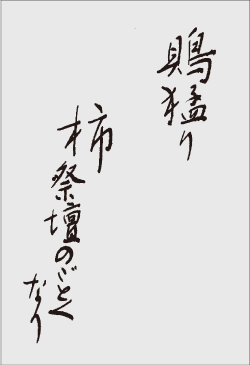 鵙猛り
柿祭壇のごとくなり